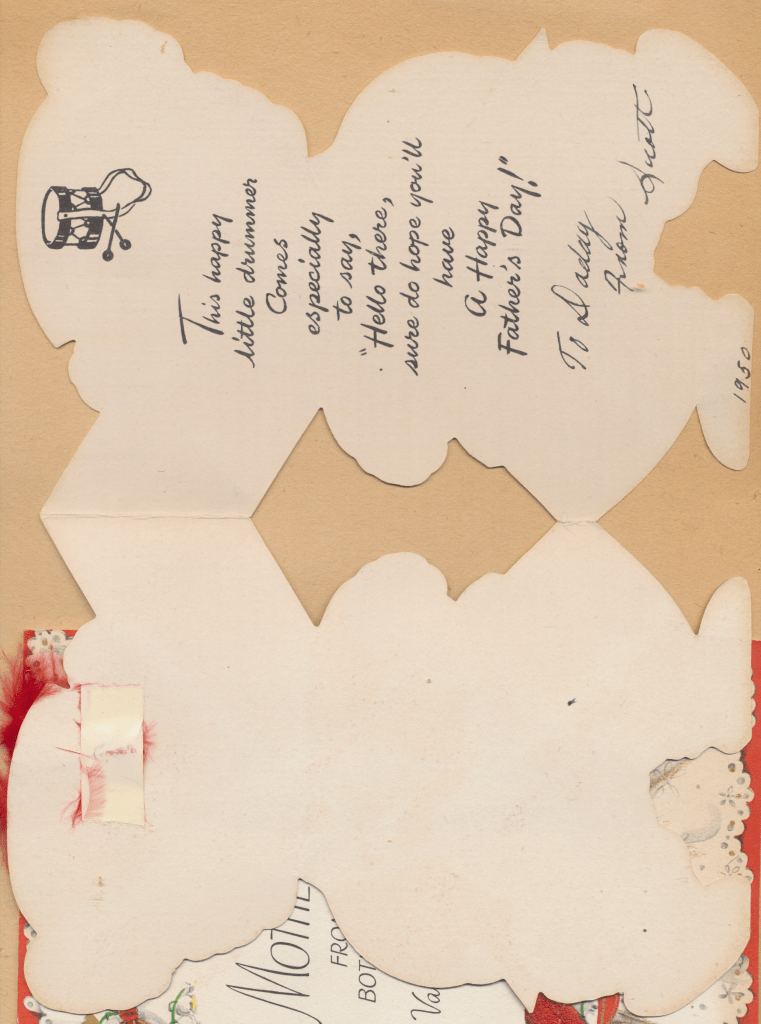 This happy
little drummer
Comes
especially
to say,
"Hello there,
sure do hope you'll
have
A Happy
Father's Day!"
To Daday
From Scott
1950
FRO
BOT
Va